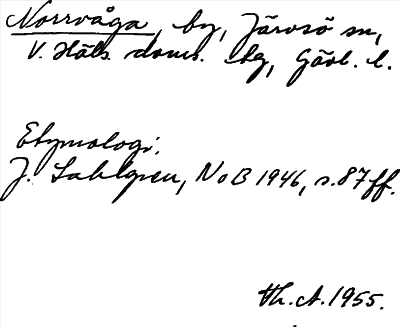 Norrvåga, by, Järvsö sn,
V. Häls. doms. hg, Gävl. l.
Etymologi.
J. Sahlgren, NoB 1946, s. 87 ff.
Th. A. 1955.